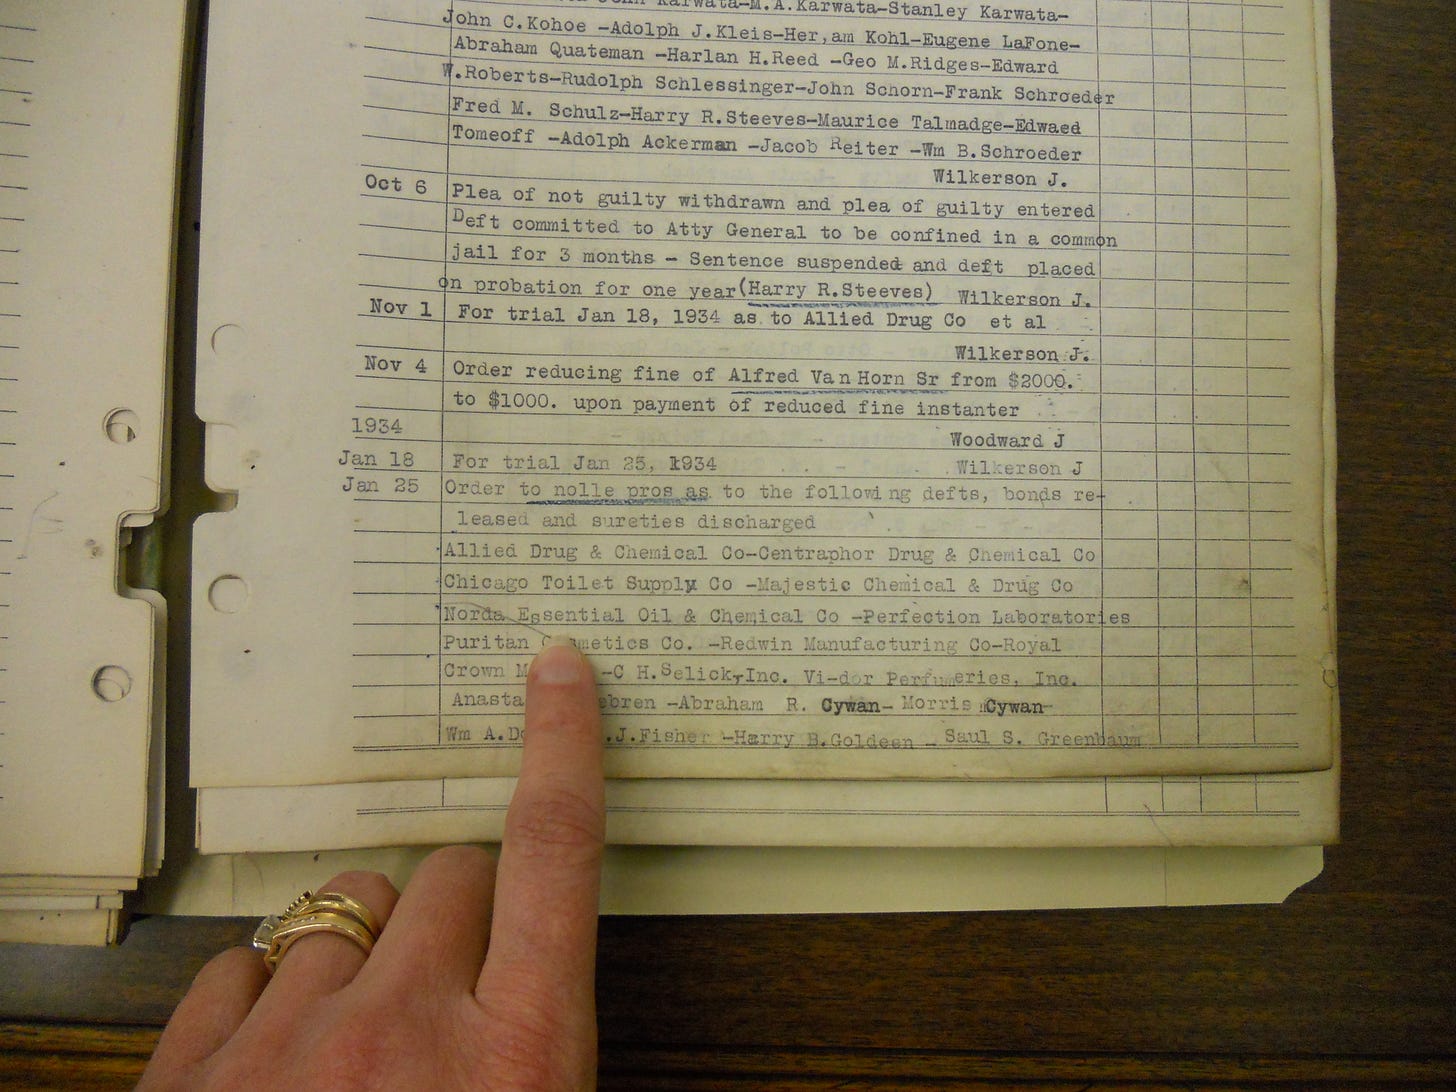 John Karwata-M.A.Karwata-Stanley Karwata-
John C.Kohoe -Adolph J.Kleis-Her,am Kohl-Eugene LaFone-
Abraham Quateman -Harlan H.Reed -Geo M.Ridges-Edward
W.Roberts-Rudolph Schlessinger-John Schorn-Frank Schroeder
Fred M. Schulz-Harry R.Steeves-Maurice Talmadge-Edwaed
Tomeoff -Adolph Ackerman -Jacob Reiter -Wm B.Schroeder
Wilkerson J.
Oct 6 Plea of not guilty withdrawn and plea of guilty entered
Deft committed to Atty General to be confined in a common
jail for 3 months - Sentence suspended and deft placed
on probation for one year(Harry R.Steeves) Wilkerson J.
Nov 1 For trial Jan 18, 1934 as to Allied Drug Co et al
Wilkerson J.
Nov 4 Order reducing fine of Alfred Van Horn Sr from $2000.
to $1000. upon payment of reduced fine instanter
1934 Woodward J
Jan 18 For trial Jan 25, 1934 Wilkerson J
Jan 25 Order to nolle pros as to the following defts, bonds re-
leased and sureties discharged
Allied Drug & Chemical Co-Centraphor Drug & Chemical Co
Chicago Toilet Supply Co -Majestic Chemical & Drug Co
Norda Essential Oil & Chemical Co -Perfection Laboratories
Puritan Cosmetics Co. -Redwin Manufacturing Co-Royal
Crown -C H.Selick,Inc. Vi-dor Perfumeries, Inc.
-Abraham R. Cywan- Morris Cywan-
Wm A. J.Fisher -Harry B.Goldeen - Saul S. Greenbaum